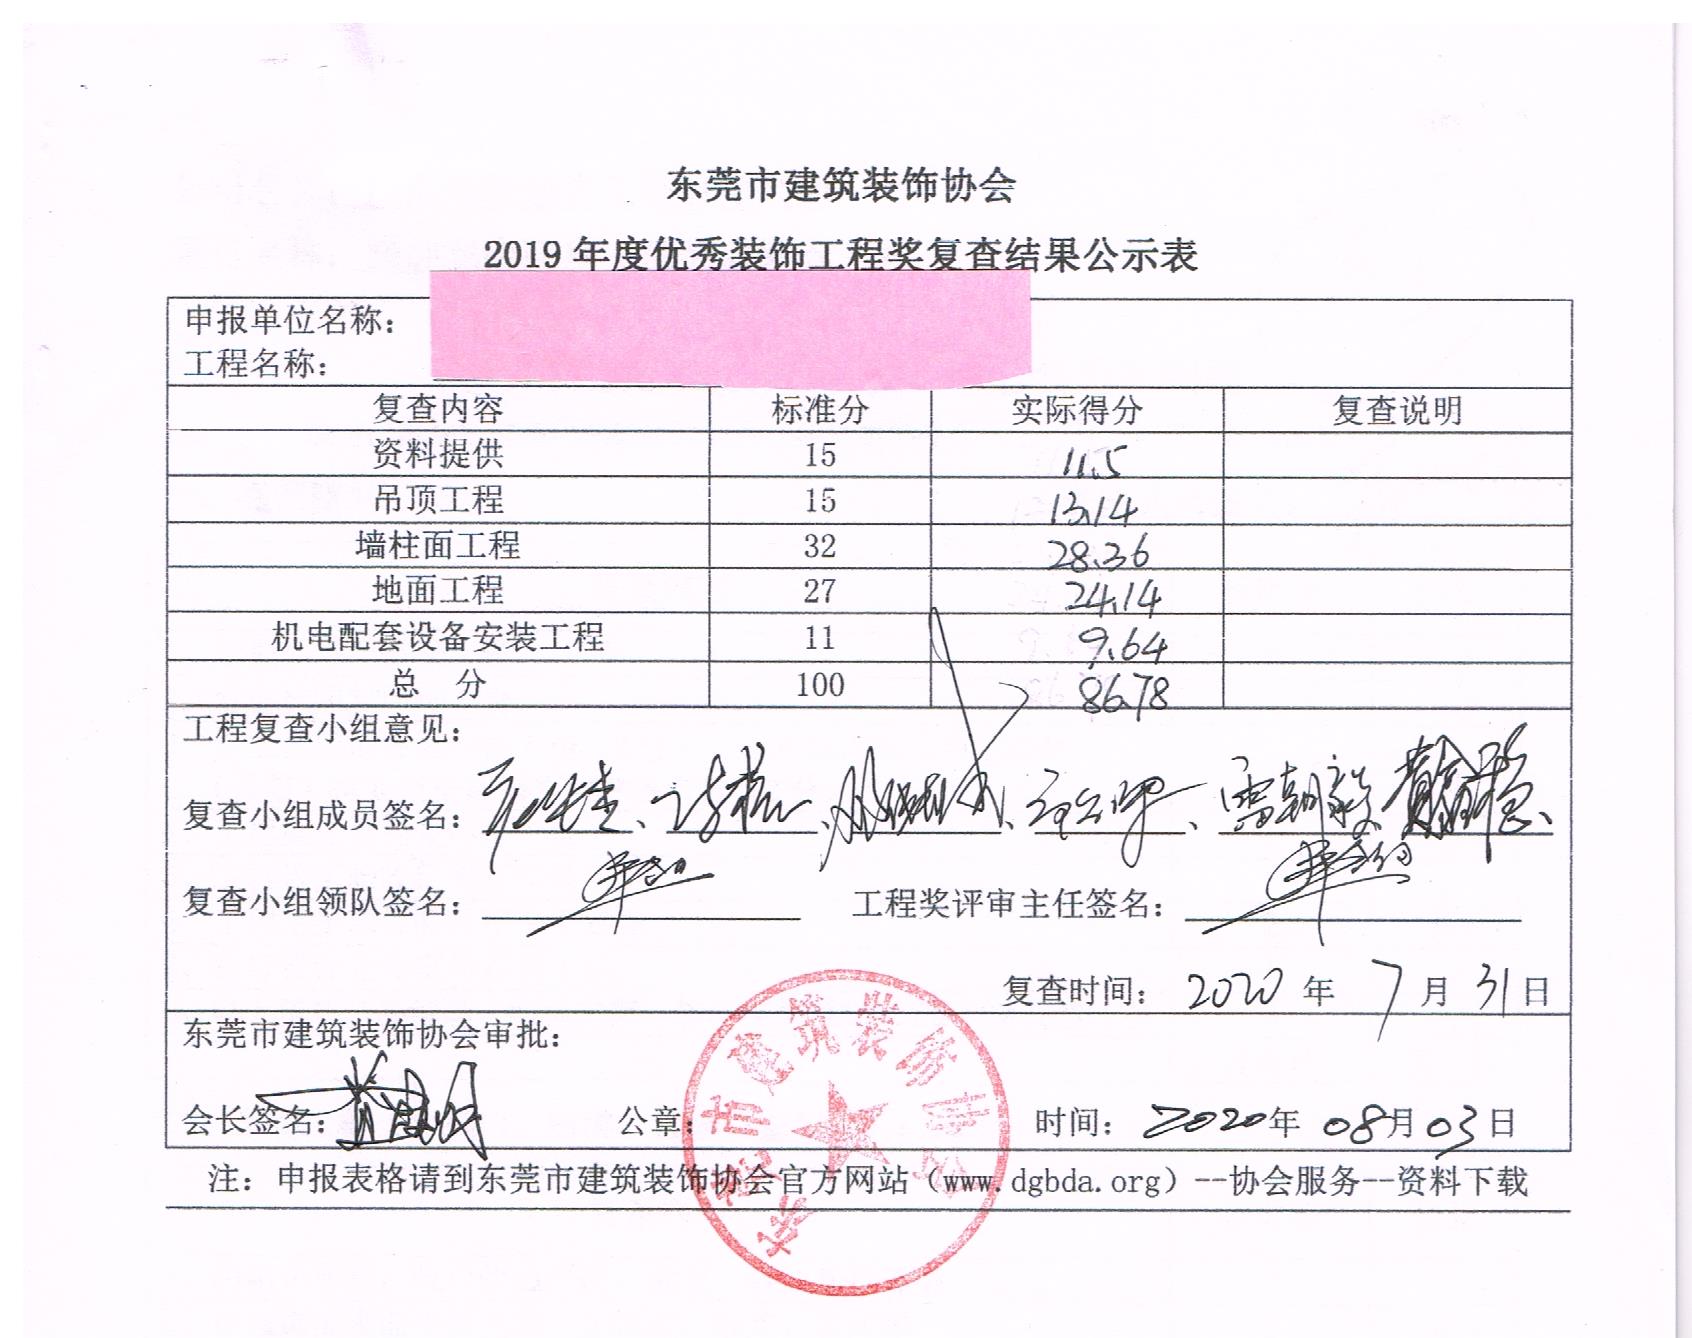 东莞市建筑装饰协会
2019 年度优秀装饰工程奖复查结果公示表
申报单位名称：
工程名称：
复查内容 标准分 实际得分 复查说明
资料提供 15 11.5
吊顶工程 15 13.14
墙柱面工程 32 28.36
地面工程 27 24.14
机电配套设备安装工程 11 9.64
总 分 100 86.78
工程复查小组意见：
复查小组成员签名：
复查小组领队签名： 工程奖评审主任签名：
复查时间： 2020 年 7 月 31 日
东莞市建筑装饰协会审批：
会长签名： 公章： 时间： 2020 年 08 月 03 日
东莞市建筑装饰协会
注：申报表格请到东莞市建筑装饰协会官方网站（www.dgbda.org）--协会服务--资料下载